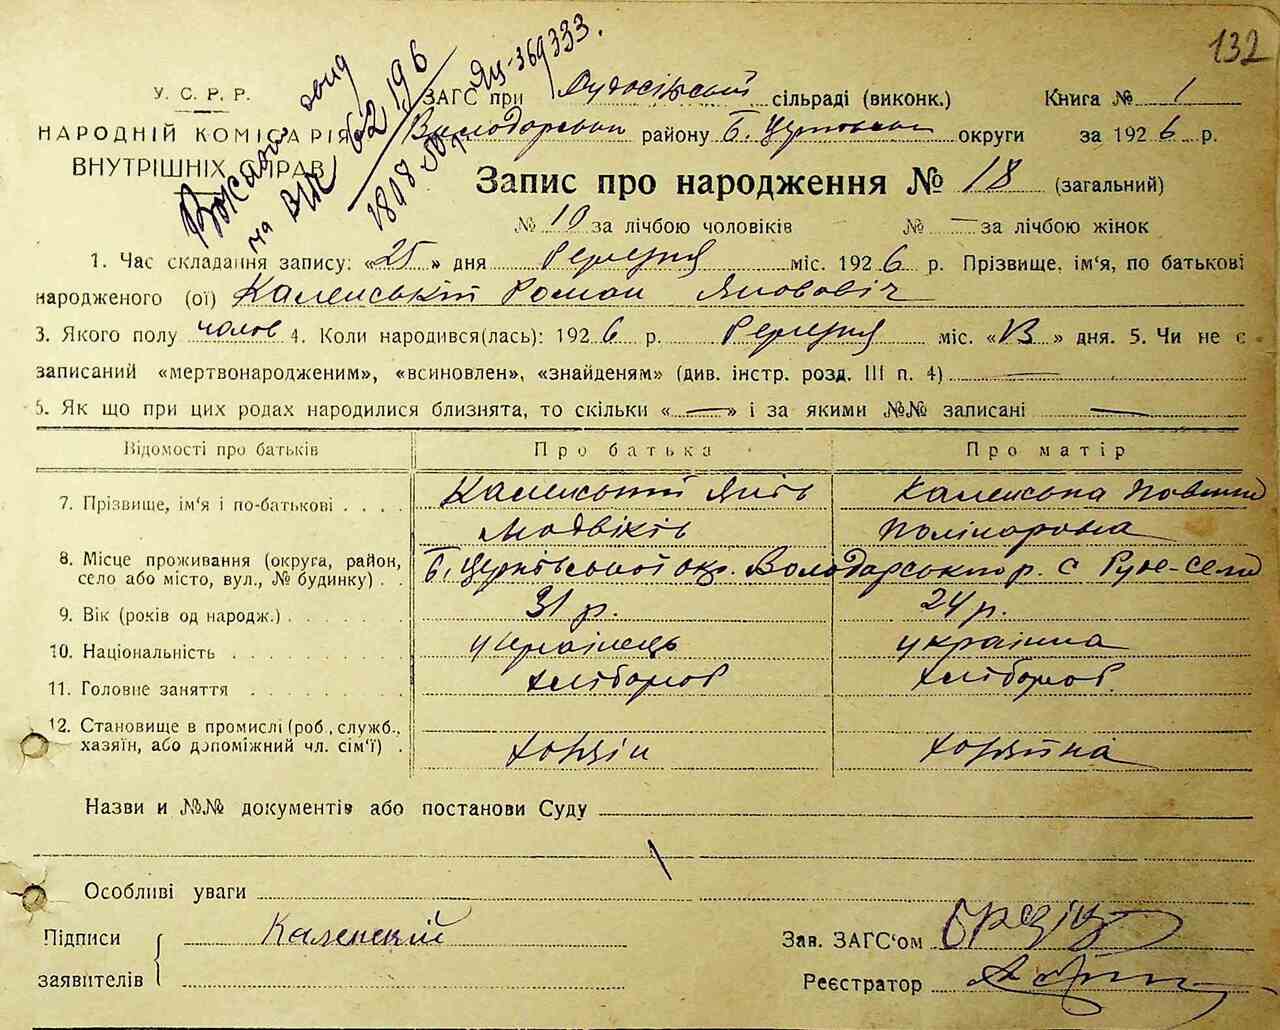 132
У. С. Р. Р.
НАРОДНІЙ КОМІСАРІЯТ
ВНУТРІШНІХ СПРАВ
на ВІК 62 196
ЯЦ-369333.
ЗАГС при Рудосільській сільраді (виконк.) Книга № 1
Володарськ району Б. Церковськ округи за 1926 р.
Запис про народження № 18 (загальний)
№ 10 за лічбою чоловіків № — за лічбою жінок
1. Час складання запису: «25» дня березня міс. 1926 р. Прізвище, ім'я, по батькові
народженого (ої) Каленський Роман Яновович
3. Якого полу чолов 4. Коли народився(лась): 1926 р. березня міс. « » дня. 5. Чи не є
записаний «мертвонародженим», «всиновлен», «знайденям» (див. інстр. розд. III п. 4) —
5. Як що при цих родах народилися близнята, то скільки «—» і за якими №№ записані —
Відомості про батьків Про батька Про матір
7. Прізвище, ім'я і по-батькові . . . . Каленський Каленська
Людвіків Полікаровна
8. Місце проживання (округа, район,
село або місто, вул., № будинку) . . Б. Церківської окр. Володарського р. с Руде-село
9. Вік (років од народж.) . . . . . . 31 р. 24 р.
10. Національність . . . . . . . . українець українка
11. Головне заняття . . . . . . . . хлібороб хлібороб
12. Становище в промислі (роб., служб.,
хазяїн, або допоміжний чл. сім'ї) . хазяїн хазяйка
Назви и №№ документів або постанови Суду
Особливі уваги
Підписи Каленский Зав. ЗАГС'ом
заявителів Реєстратор